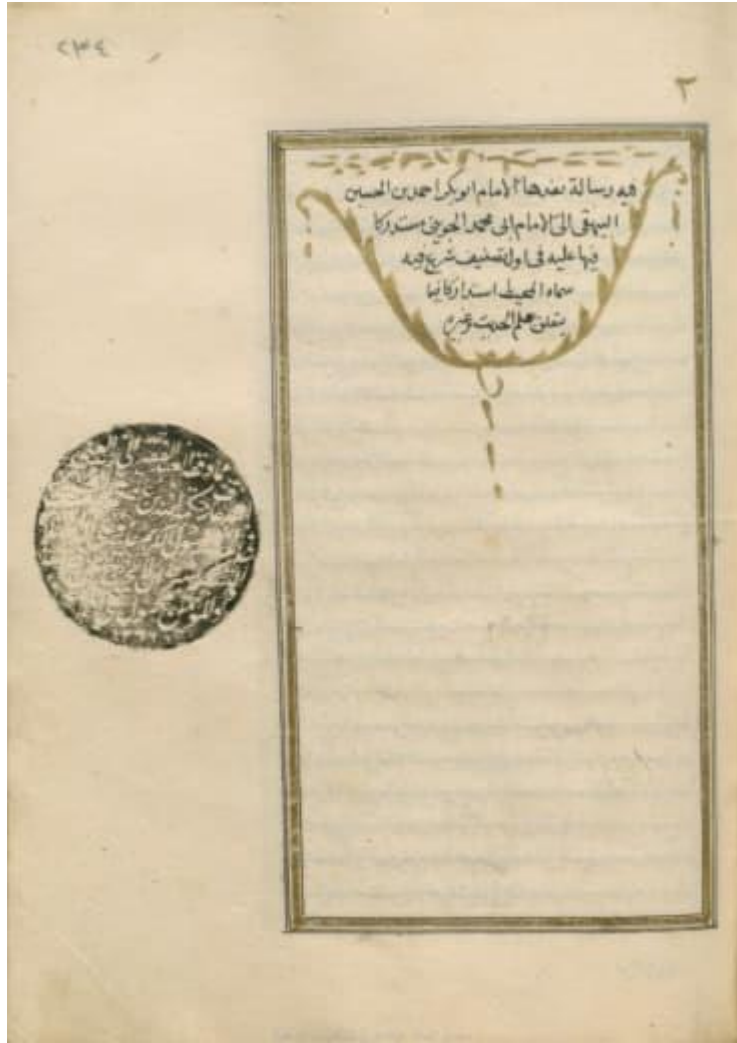 ٢٣٤
٢
فيه رسالة نفدها الامام ابو بكر احمد بن الحسين
البيهقى الى الامام ابى محمد الجوينى مستدركا
فيها عليه فى اول تصنيف شرع فيه
سماه المحيط استدراكا فيما
يتعلق بعلم الحديث وغيره